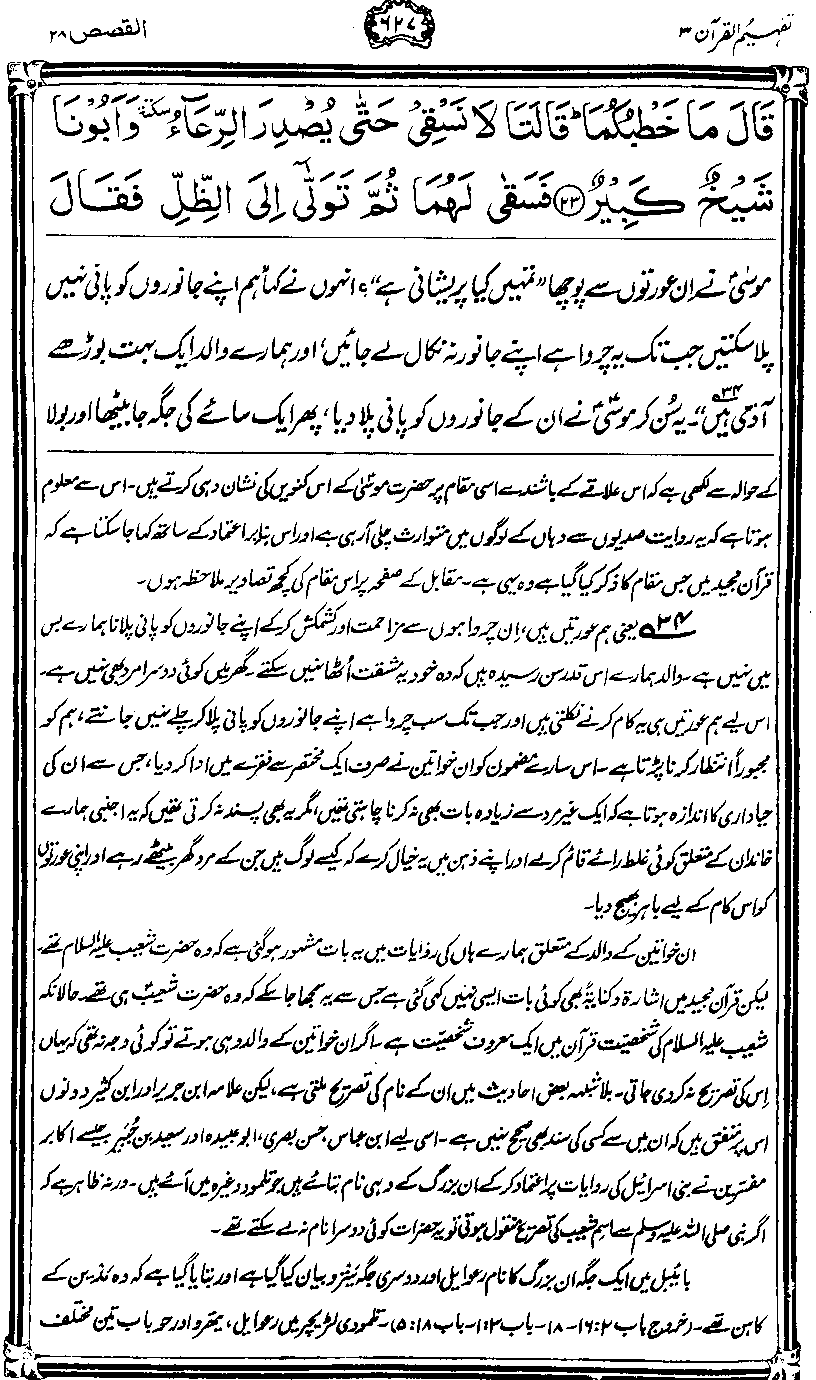 تفہیم القرآن ۳
۶۲۷
القصص ۲۸
قَالَ مَا خَطْبُكُمَا ۭ قَالَتَا لَا نَسْقِیْ حَتّٰی یُصْدِرَ الرِّعَآءُ سکتۃ وَاَبُوْنَا
شَیْخٌ كَبِیْرٌ ﴿۲۳﴾ فَسَقٰی لَهُمَا ثُمَّ تَوَلّٰۤی اِلَی الظِّلِّ فَقَالَ
موسیٰؑ نے ان عورتوں سے پوچھا ”تمہیں کیا پریشانی ہے“؟ انہوں نے کہا ”ہم اپنے جانوروں کو پانی نہیں
پلا سکتیں جب تک یہ چرواہے اپنے جانور نہ نکال لے جائیں، اور ہمارے والد ایک بہت بوڑھے
آدمی ہیں“۔ ۳۴؎ یہ سُن کر موسیٰؑ نے ان کے جانوروں کو پانی پلا دیا، پھر ایک سائے کی جگہ جا بیٹھا اور بولا
کے حوالہ سے لکھی ہے کہ اس علاقے کے باشندے اسی مقام پر حضرت موسیٰ کے اس کنویں کی نشان دہی کرتے ہیں۔ اس سے معلوم
ہوتا ہے کہ یہ روایت صدیوں سے وہاں کے لوگوں میں متوارث چلی آ رہی ہے اور اس بنا پر اعتماد کے ساتھ کہا جا سکتا ہے کہ
قرآن مجید میں جس مقام کا ذکر کیا گیا ہے وہ یہی ہے۔ مقابل کے صفحہ پر اس مقام کی کچھ تصاویر ملاحظہ ہوں۔
۳۴؎ یعنی ہم عورتیں ہیں، اِن چرواہوں سے مزاحمت اور کشمکش کر کے اپنے جانوروں کو پانی پلانا ہمارے بس
میں نہیں ہے۔ والد ہمارے اس قدر سن رسیدہ ہیں کہ وہ خود یہ مشقت اُٹھا نہیں سکتے۔ گھر میں کوئی دوسرا مرد بھی نہیں ہے۔
اس لیے ہم عورتیں ہی یہ کام کرنے نکلتی ہیں اور جب تک سب چرواہے اپنے جانوروں کو پانی پلا کر چلے نہیں جاتے، ہم کو
مجبوراً انتظار کرنا پڑتا ہے۔ اس سارے مضمون کو ان خواتین نے صرف ایک مختصر سے فقرے میں ادا کر دیا، جس سے ان کی
حیاداری کا اندازہ ہوتا ہے کہ ایک غیر مرد سے زیادہ بات بھی نہ کرنا چاہتی تھیں، مگر یہ بھی پسند نہ کرتی تھیں کہ یہ اجنبی ہمارے
خاندان کے متعلق کوئی غلط رائے قائم کرلے اور اپنے ذہن میں یہ خیال کرے کہ کیسے لوگ ہیں جن کے مرد گھر بیٹھے رہے اور اپنی عورتوں
کو اس کام کے لیے باہر بھیج دیا۔
ان خواتین کے والد کے متعلق ہمارے ہاں کی روایات میں یہ بات مشہور ہو گئی ہے کہ وہ حضرت شعیب علیہ السلام تھے۔
لیکن قرآن مجید میں اشارۃً و کنایۃً بھی کوئی بات ایسی نہیں کہی گئی ہے جس سے یہ سمجھا جا سکے کہ وہ حضرت شعیبؑ ہی تھے۔ حالانکہ
شعیب علیہ السلام کی شخصیّت قرآن میں ایک معروف شخصیّت ہے۔ اگر ان خواتین کے والد وہی ہوتے تو کوئی وجہ نہ تھی کہ یہاں
اِس کی تصریح نہ کر دی جاتی۔ بلاشبہ بعض احادیث میں ان کے نام کی تصریح ملتی ہے، لیکن علامہ ابن جریر اور ابن کثیر دونوں
اس پر متفق ہیں کہ ان میں سے کسی کی سند بھی صحیح نہیں ہے۔ اسی لیے ابن عباس، حسن بصری، ابو عبیدہ اور سعید بن جُبَیر جیسے اکابر
مفسّرین نے بنی اسرائیل کی روایات پر اعتماد کر کے ان بزرگ کے وہی نام بتائے ہیں جو تلمود وغیرہ میں آئے ہیں۔ ورنہ ظاہر ہے کہ
اگر نبی صلی اللہ علیہ وسلم سے اسمِ شعیب کی تصریح منقول ہوتی تو یہ حضرات کوئی دوسرا نام نہ لے سکتے تھے۔
بائیبل میں ایک جگہ ان بزرگ کا نام رعوایل اور دوسری جگہ یترو بیان کیا گیا ہے اور بتایا گیا ہے کہ وہ مَدْیَن کے
کاہن تھے۔ (خروج باب ۲: ۱۶-۱۸۔ باب ۳: ۱۔ باب ۱۸: ۵)۔ تلمودی لٹریچر میں رعوایل، یتھرو اور حوباب تین مختلف